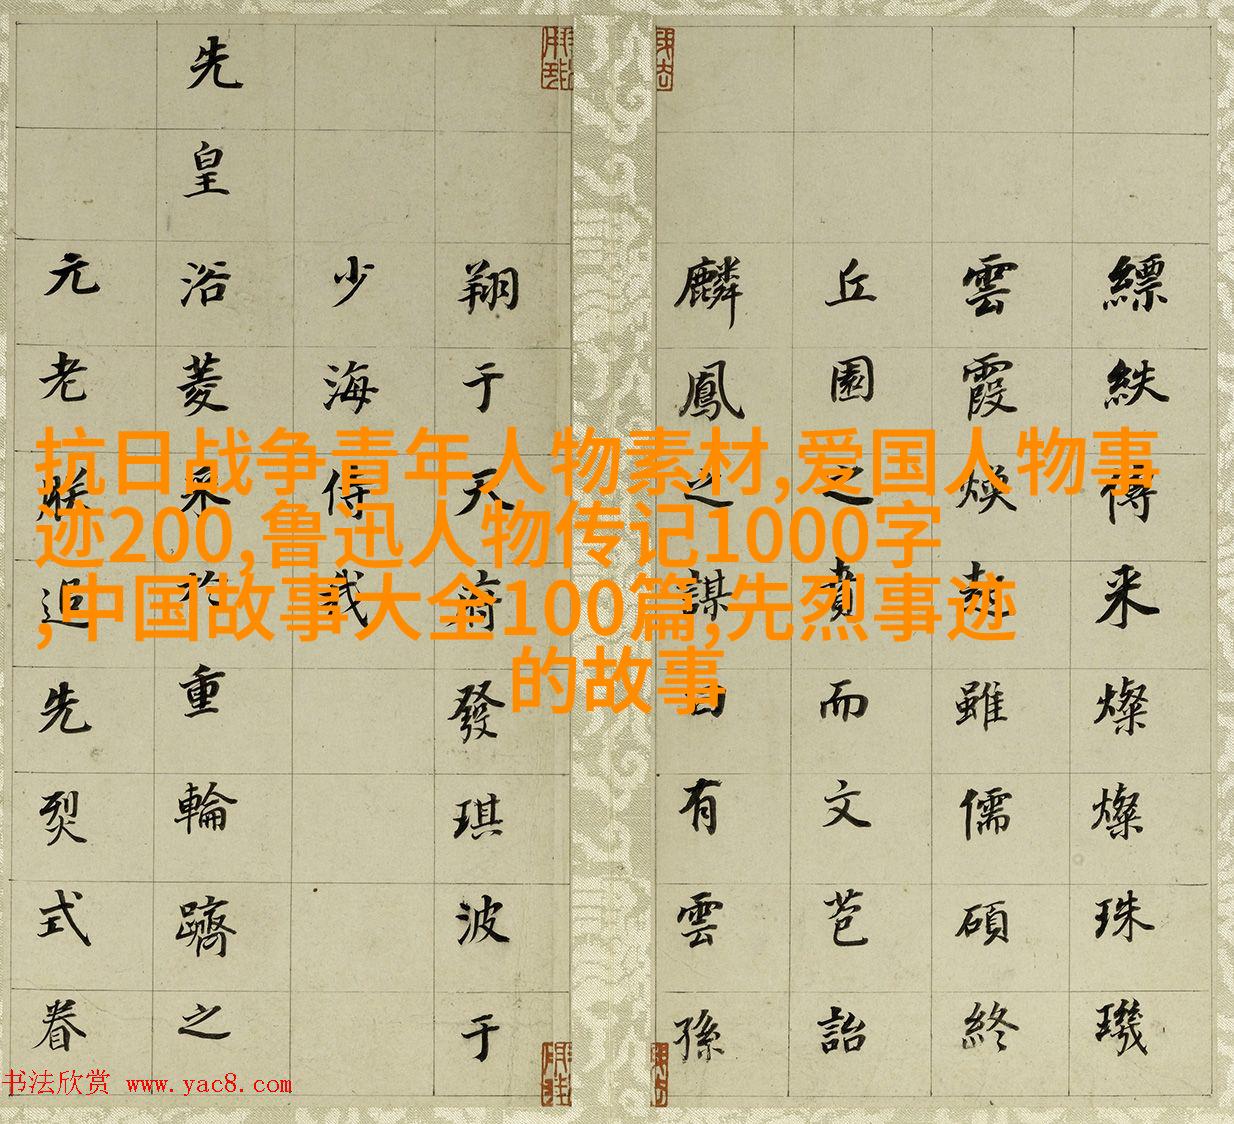 抗日战争青年人物素材,爱国人物事
迹200,鲁迅人物传记1000字
,中国故事大全100篇,先烈事迹
的故事
縹紩傳来燦燦珠璣
雲霞煥雖儒碩終
丘園之賁而文芭詒
麟鳳之謀曰有雲孫
翔于天發琪波于
少海侍
先皇浴菱采於重輪躋之
元老追先烈式眷
书法欣赏 www.yac8.com